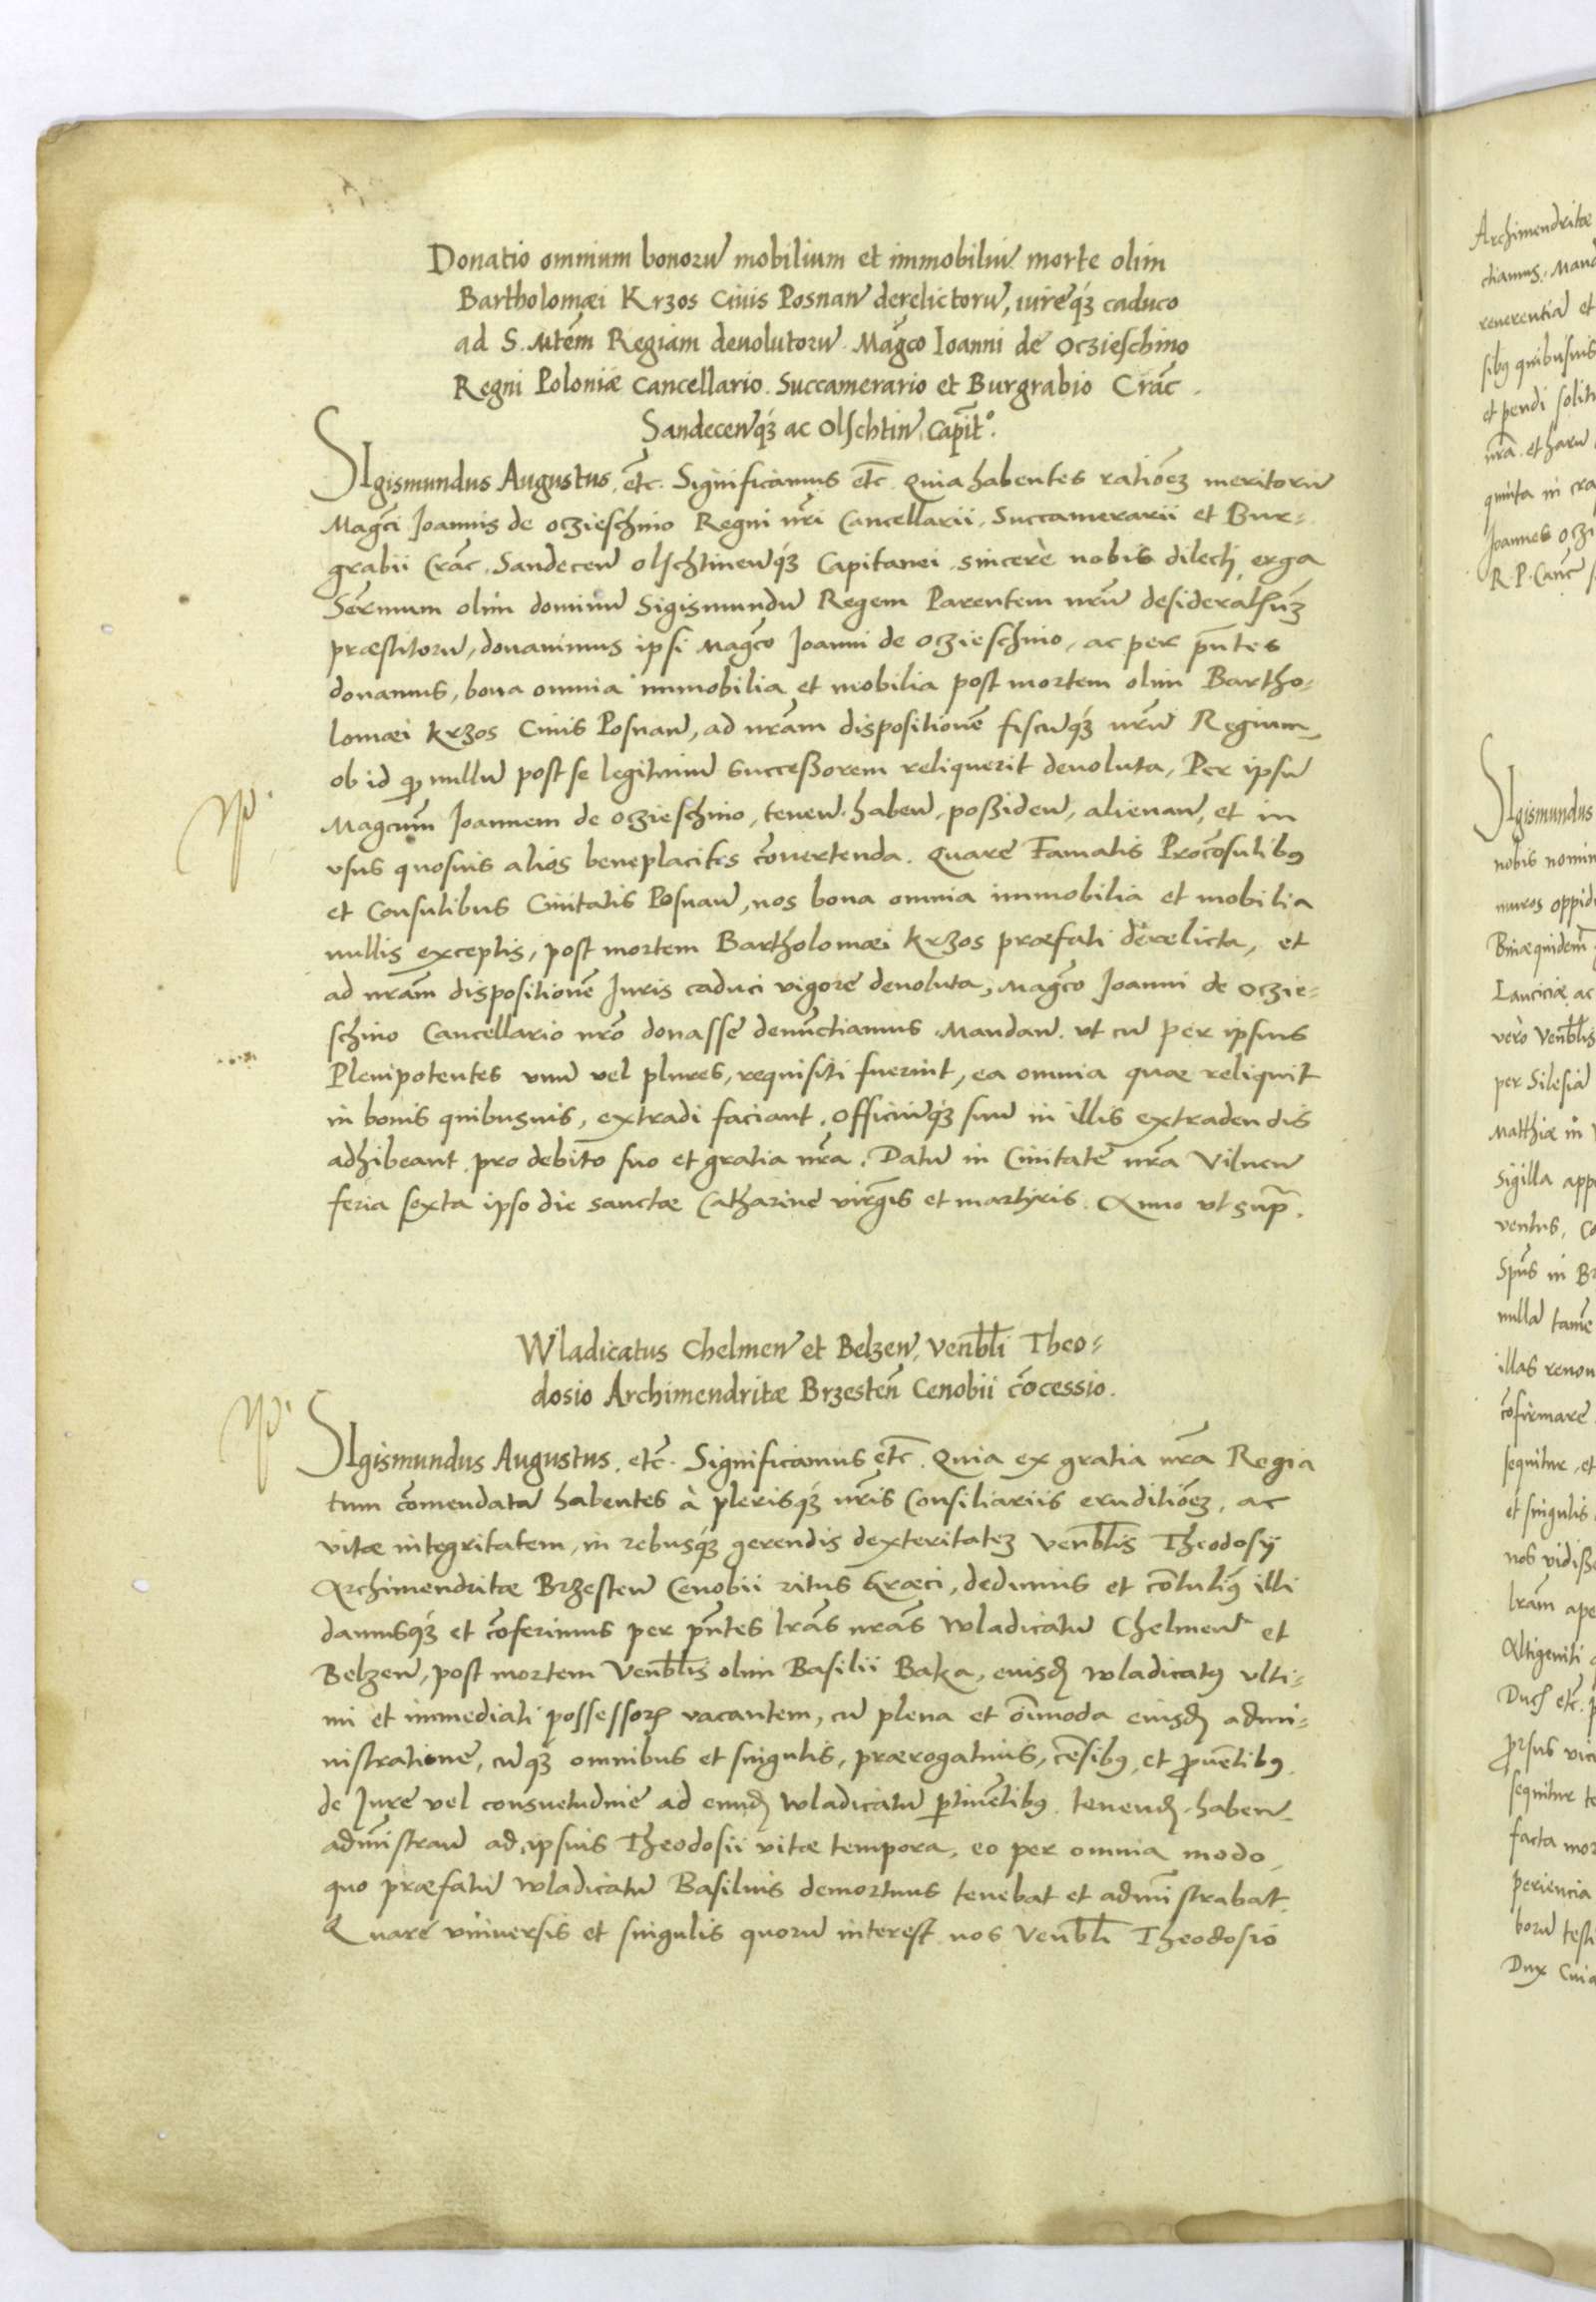 Donatio omnium bonorũ mobilium et immobiliũ morte olim
Bartholomæi Krzos Ciuis Posnañ derelictorũ, iureq́ꝫ caduco
ad S. Mtẽm Regiam deuolutorũ Mag̃co Ioanni de Oczieschino
Regni Poloniæ Cancellario. Succamerario et Burgrabio Crãc.
Sandeceñq́ꝫ ac Olschtiñ Capit̃º.
SIgismundus Augustus. et̃c. Significamus et̃c Quia habentes ratiõeꝫ meritorũ
Mag̃ci Joannis de Oczieschino Regni nr̃i Cancellarii, Succamerarii et Bur=
grabii Crãc. Sandeceñ Olschtineñq́ꝫ Capitanei sincerè nobis dilecti, erga
Ser̃mum olim dominũ Sigismundũ Regem Parentem nrũ desideratiss̃ꝫ
præstitorũ, donauimus ipsi Mag̃co Joanni de Oczieschino, ac per pñtes
donamus, bona omnia immobilia et mobilia post mortem olim Bartho=
lomæi Krzos Ciuis Posnañ, ad nrãm dispositionẽ fiscũq́ꝫ nrũ Regium,
ob id qꝫ nullũ post se legitimũ Successorem reliquerit deuoluta, Per ipsũ
Magcum̃ Joannem de Oczieschino, teneñ. habeñ. possideñ, alienañ, et in
vsus quosuis alios beneplacitos cõuertenda. Quare Famatis Procõsulibꝰ
et Consulibus Ciuitatis Posnañ, nos bona omnia immobilia et mobilia
nullis exceptis, post mortem Bartholomæi Krzos præfati derelicta, et
ad nrãm dispositionẽ Juris caduci vigore deuoluta, Mag̃co Joanni de Oczie=
schino Cancellario nrõ donasse denũctiamus. Mandañ. vt cũ per ipsius
Plenipotentes vnũ vel plures, requisiti fuerint, ea omnia quæ reliquit
in bonis quibusuis, extradi faciant, Officiũq́ꝫ suũ in illis extradendis
adhibeant pro debito suo et gratia nrã. Datũ in Ciuitate nrã Vilneñ
feria sexta ipso die sanctæ Catharine virg̃is et martyris. Anno vt sup̃.
Wladicatus Chelmeñ et Belzeñ. Venb̃li Theo=
dosio Archimendritæ Brzesteñ Cenobii cõcessio.
SIgismundus Augustus. et̃c. Significamus et̃c. Quia ex gratia nrã Regia
tum cõmendatã habentes à plerisq́ꝫ nrĩs Consiliariis eruditiõeꝫ, ac
vitæ integritatem, in rebusq́ꝫ gerendis dexteritateꝫ Venb̃lis Theodosÿ
Archimendritæ Brzesteñ Cenobii ritus Græci, dedimus et cõtulimꝰ illi
damusq́ꝫ et cõferimus per pñtes lrãs nrãs Wladicatũ Chelmeñ et
Belzeñ, post mortem Venb̃lis olim Basilii Baka, eiusđ wladicatꝰ vlti=
mi et immediati possessorꝭ vacantem, cũ plena et oĩmoda eiusđ admi=
nistratione, cũq́ꝫ omnibus et singulis, prærogatiuis, cẽsibꝰ, et ꝓuẽtibꝰ.
de Jure vel consuetudine ad eundđ Wladicatũ ꝑtinẽtibꝰ. tenenđ. habeñ
admĩstrañ ad ipsius Theodosii vitæ tempora, eo per omnia modo,
quo præfatũ wladicatũ Basilius demortuus tenebat et admĩstrabat.
Quare vniuersis et singulis quorũ interest nos Venb̃li Theodosio
Archimendritæ
reuerentiã et
sibꝰ quibusuis
et pendi
nrã. et harũ
quinta in
Joannes
R. P. Canc̃
SIgismundus
nobis
muros
Lanciciæ ac
vero Venb̃lis
per Silesiã
Matthiæ in
Sigilla
ventus,
Spũs in
nullã tamẽ
illas
cõfirmare
sequitur, et
et singulis
nos
lrãm
Altigeniti
sequitur
facta
periencia
borũ
Dux